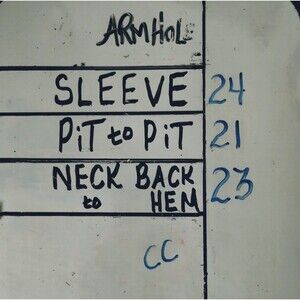 ARMHOL
SLEEVE 24
PiT to PiT 21
NECK BACK 23
to HEM
CC